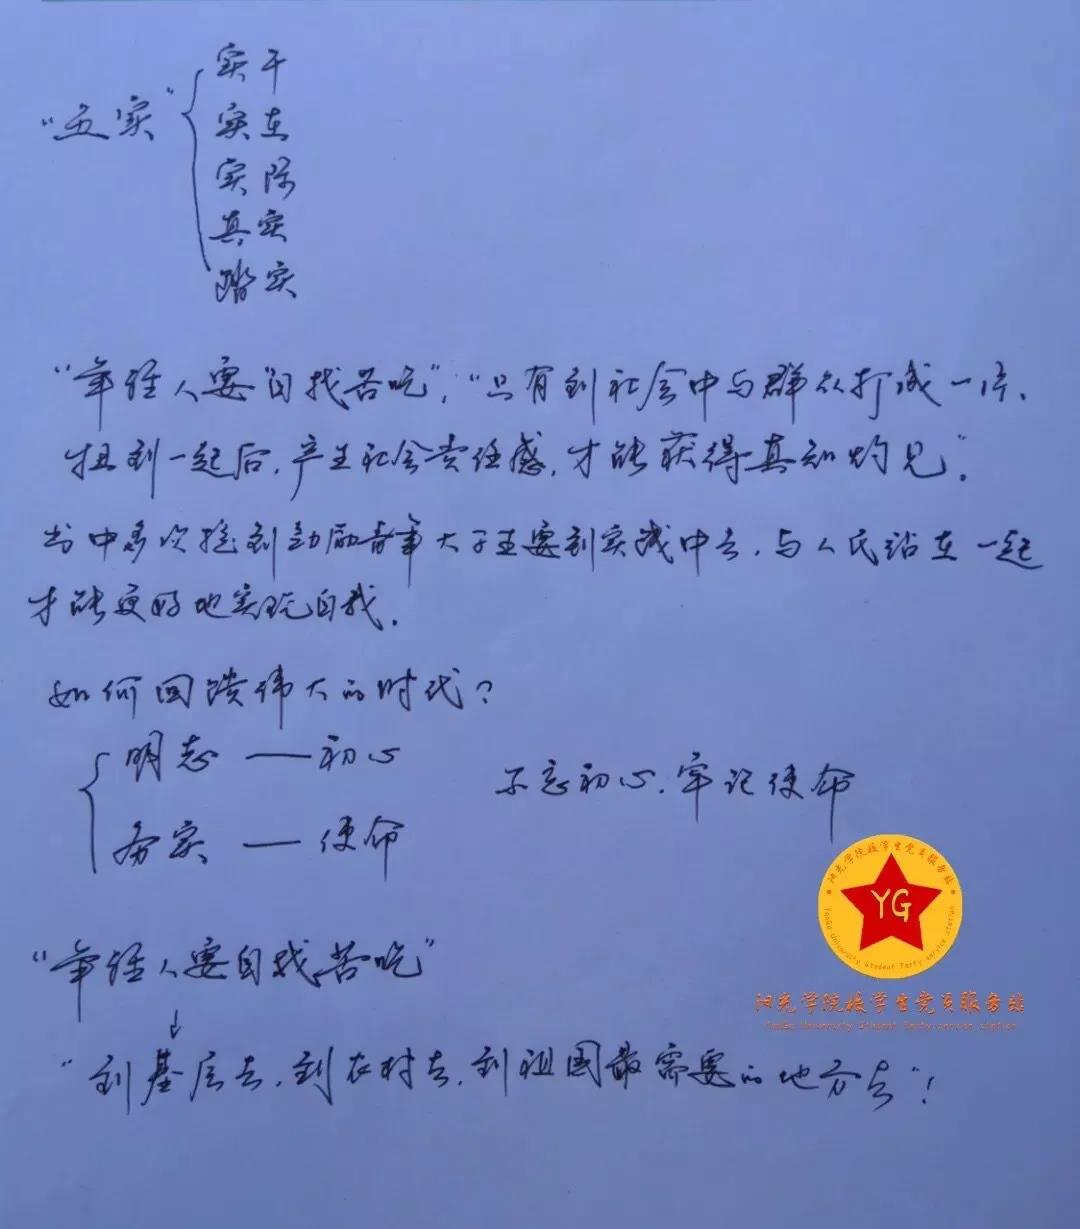 “五实”
实干
实在
实际
真实
踏实
“年轻人要自找苦吃”，“只有到社会中与群众打成一片、
扭到一起后，产生社会责任感，才能获得真知灼见”。
书中多次提到勉励青年大学生要到实践中去，与人民站在一起
才能更好地实现自我。
如何回馈伟大的时代？
明志 —— 初心
务实 —— 使命
不忘初心，牢记使命
阳光学院校学生党员服务站
YG
YanGo University Student Party service station
阳光学院校学生党员服务站
YanGo University Student Party service station
“年轻人要自找苦吃”
↓
“到基层去，到农村去，到祖国最需要的地方去”！